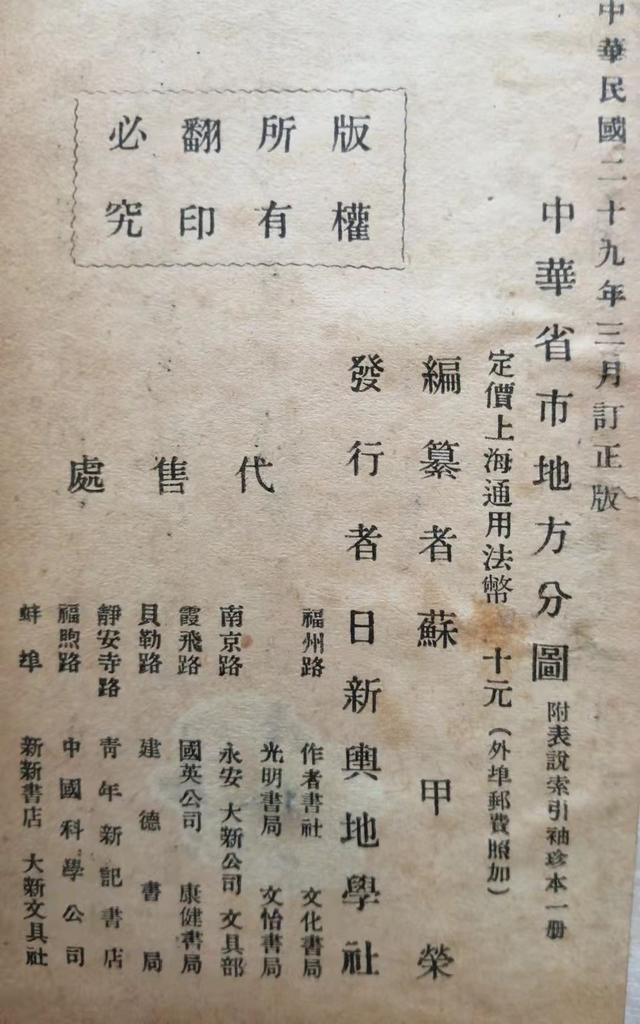 中華民國二十九年三月訂正版
中華省市地方分圖 附表說索引袖珍本一册
定價上海通用法幣 十元(外埠郵費照加)
編纂者蘇甲榮
發行者日新輿地學社
版權
所有
翻印
必究
代售處
福州路 作者書社 文化書局
光明書局 文怡書局
南京路 永安 大新公司 文具部
霞飛路 國英公司 康健書局
貝勒路 建德書局
靜安寺路 青年新記書店
福煦路 中國科學公司
蚌埠 新新書店 大新文具社